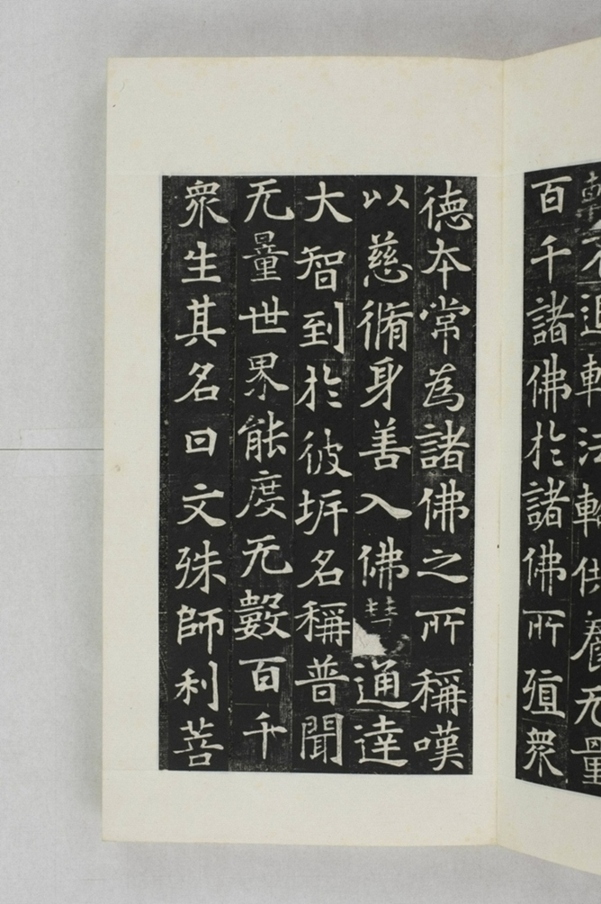 轉不退轉法輪供養无量
百千諸佛於諸佛所殖衆
德本常為諸佛之所稱嘆
以慈脩身善入佛慧通達
大智到於彼岸名稱普聞
无量世界能度无數百千
衆生其名曰文殊師利菩